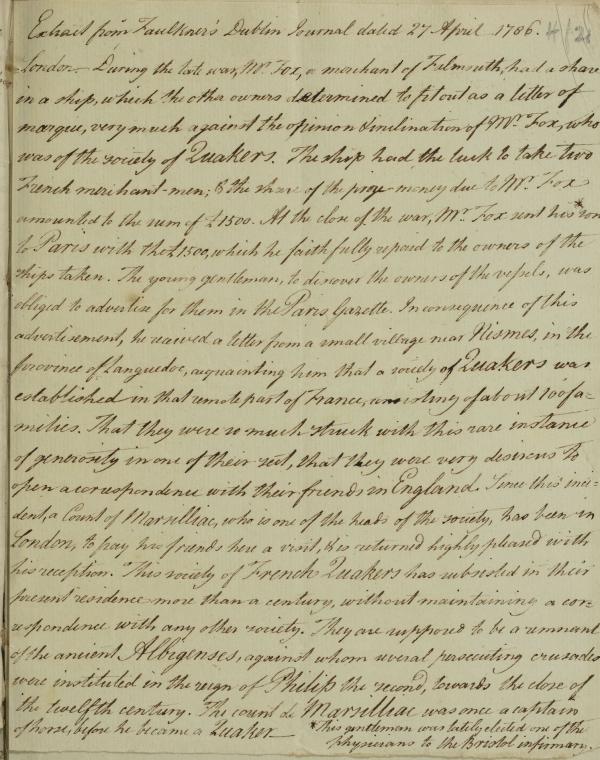 Extract from Faulkner's Dublin Journal dated 27 April 1786.
London.— During the late war, Mr. Fox, a merchant of Falmouth, had a share
in a ship, which the other owners determined to fit out as a letter of
marque, very much against the opinion & inclination of Mr. Fox, who
was of the society of Quakers. The ship had the luck to take two
French merchant-men; & the share of the prize-money due to Mr. Fox
amounted to the sum of £1500. At the close of the war, Mr. Fox sent his *son
to Paris with the £1500, which he faithfully repaid to the owners of the
ships taken. The young gentleman, to discover the owners of the vessels, was
obliged to advertise for them in the Paris Gazette. In consequence of this
advertisement, he received a letter from a small village near Nismes, in the
province of Languedoc, acquainting him that a society of Quakers was
established in that remote part of France, consisting of about 100 fa-
milies. That they were so much struck with this rare instance
of generosity in one of their sect, that they were very desirous to
open a correspondence with their friends in England. Since this inci-
dent, a Count of Marsilliac, who is one of the heads of the society, has been in
London, to pay his friends here a visit, & is returned highly pleased with
his reception. This society of French Quakers has subsisted in their
present residence more than a century, without maintaining a cor-
respondence with any other society. They are supposed to be a remnant
of the ancient Albigenses, against whom several persecuting crusades
were instituted in the reign of Philip the second, towards the close of
the twelfth century. The count de Marsilliac was once a captain
of horse, before he became a Quaker.
*This gentleman was lately elected one of the
physicians to the Bristol infirmary.